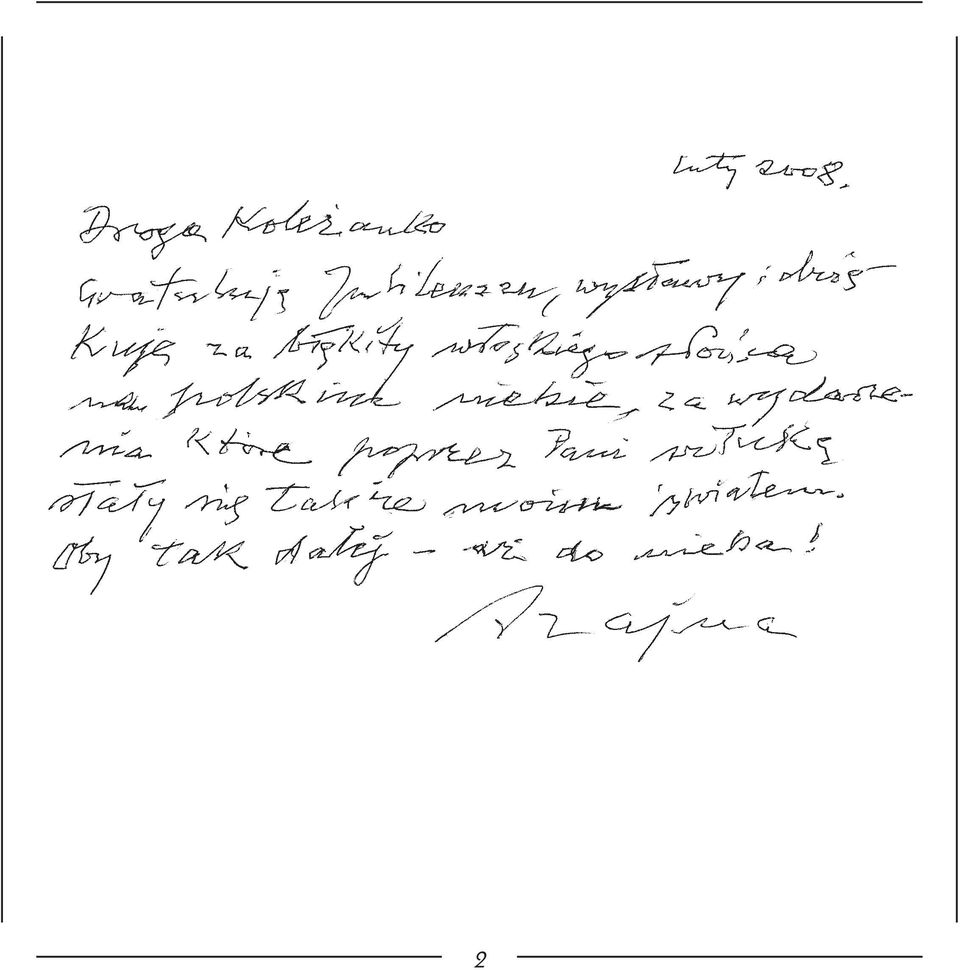 Luty 2008.
Droga Koleżanko
Gratuluję Jubileuszu, wystawy i dzię-
Kuję za błękity włoskiego słońca
na polskim niebie, za wydarze-
nia które poprzez Pani sztukę
stały się także moim światem.
Oby tak dalej – aż do nieba!
Szajna
2